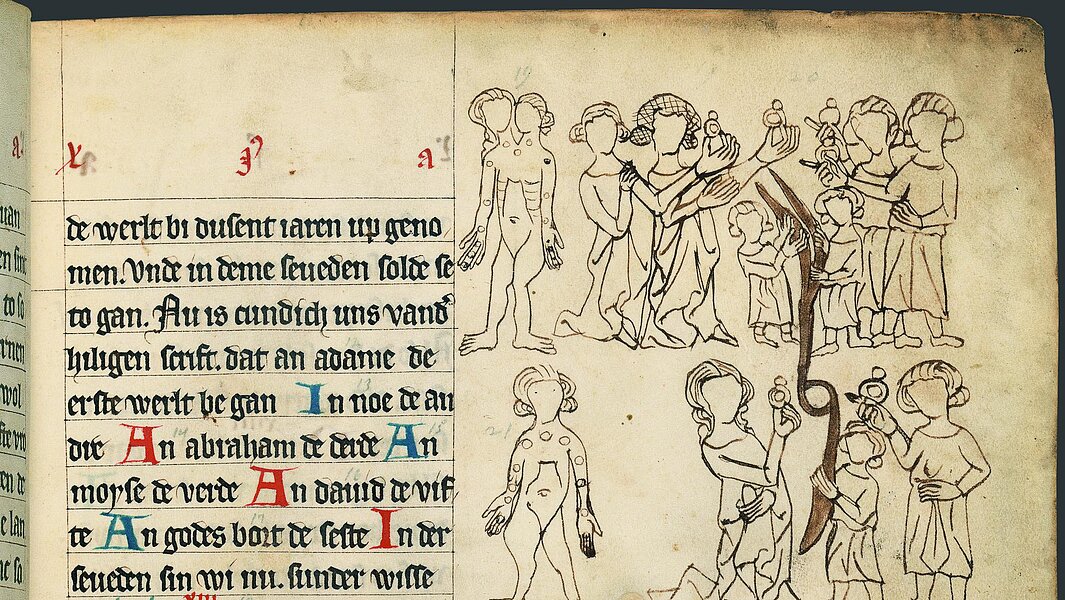 de werlt bi dusent iaren up geno
men. Vnde in deme seueden solde se
to gan. Nu is cundich uns vand'
hiligen scrift. dat an adame de
erste werlt be gan In noe de an
dre An abraham de derde An
moyse de verde An dauid de vif
te An godes bort de seste In der
seueden sin wi nu. sunder wisse